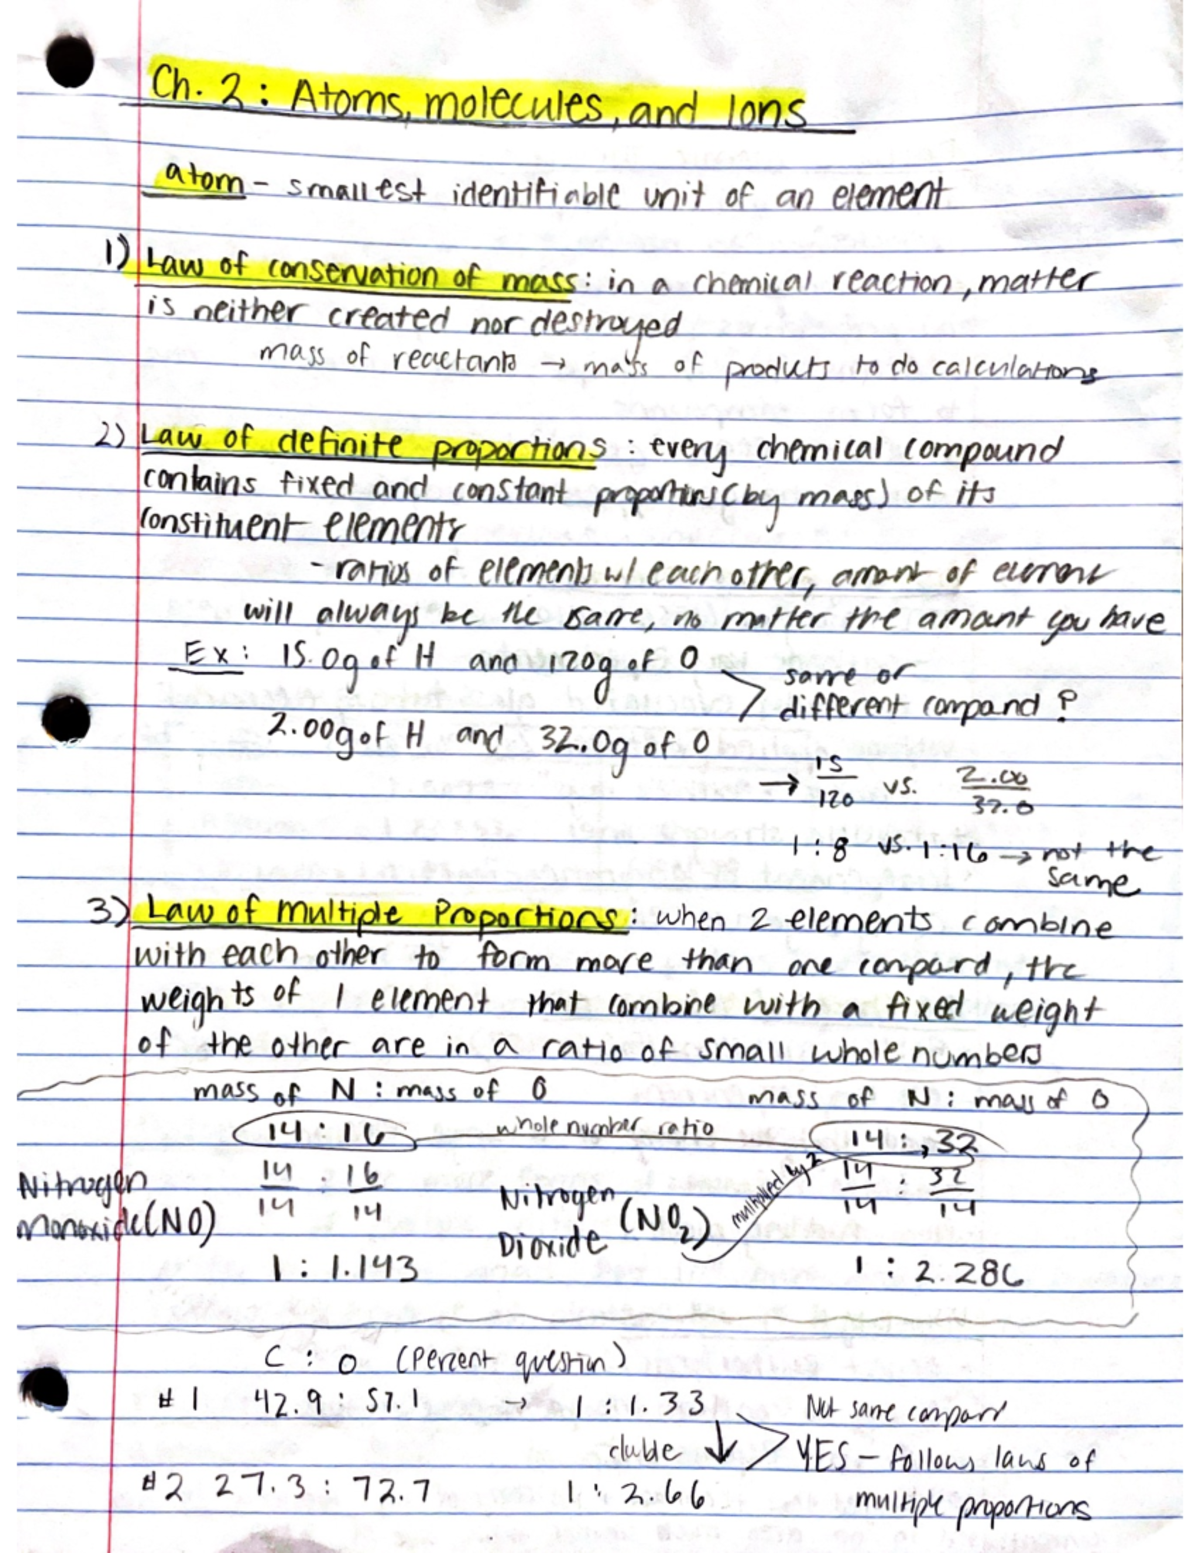 Ch. 2: Atoms, molecules, and Ions
atom - smallest identifiable unit of an element
1) Law of conservation of mass: in a chemical reaction, matter
is neither created nor destroyed
mass of reactants → mass of products to do calculations
2) Law of definite proportions: every chemical compound
contains fixed and constant proportions (by mass) of its
constituent elements
- ratios of elements w/ each other, amount of element
will always be the same, no matter the amount you have
Ex: 15.0g of H and 120g of O
same or
different compound?
2.00g of H and 32.0g of O
→ 15/120 vs. 2.00/32.0
1:8 vs. 1:16 → not the
same
3) Law of Multiple Proportions: when 2 elements combine
with each other to form more than one compound, the
weights of 1 element that combine with a fixed weight
of the other are in a ratio of small whole numbers
mass of N : mass of O mass of N : mass of O
14 : 16 whole number ratio 14 : 32
Nitrogen
Monoxide (NO)
14/14 : 16/14
1 : 1.143
Nitrogen
Dioxide (NO₂)
multiplied by 2
14/14 : 32/14
1 : 2.286
C : O (Percent question)
#1 42.9 : 57.1 → 1 : 1.33 Not same compound
double ↓ YES - follows laws of
multiple proportions
#2 27.3 : 72.7 1 : 2.66